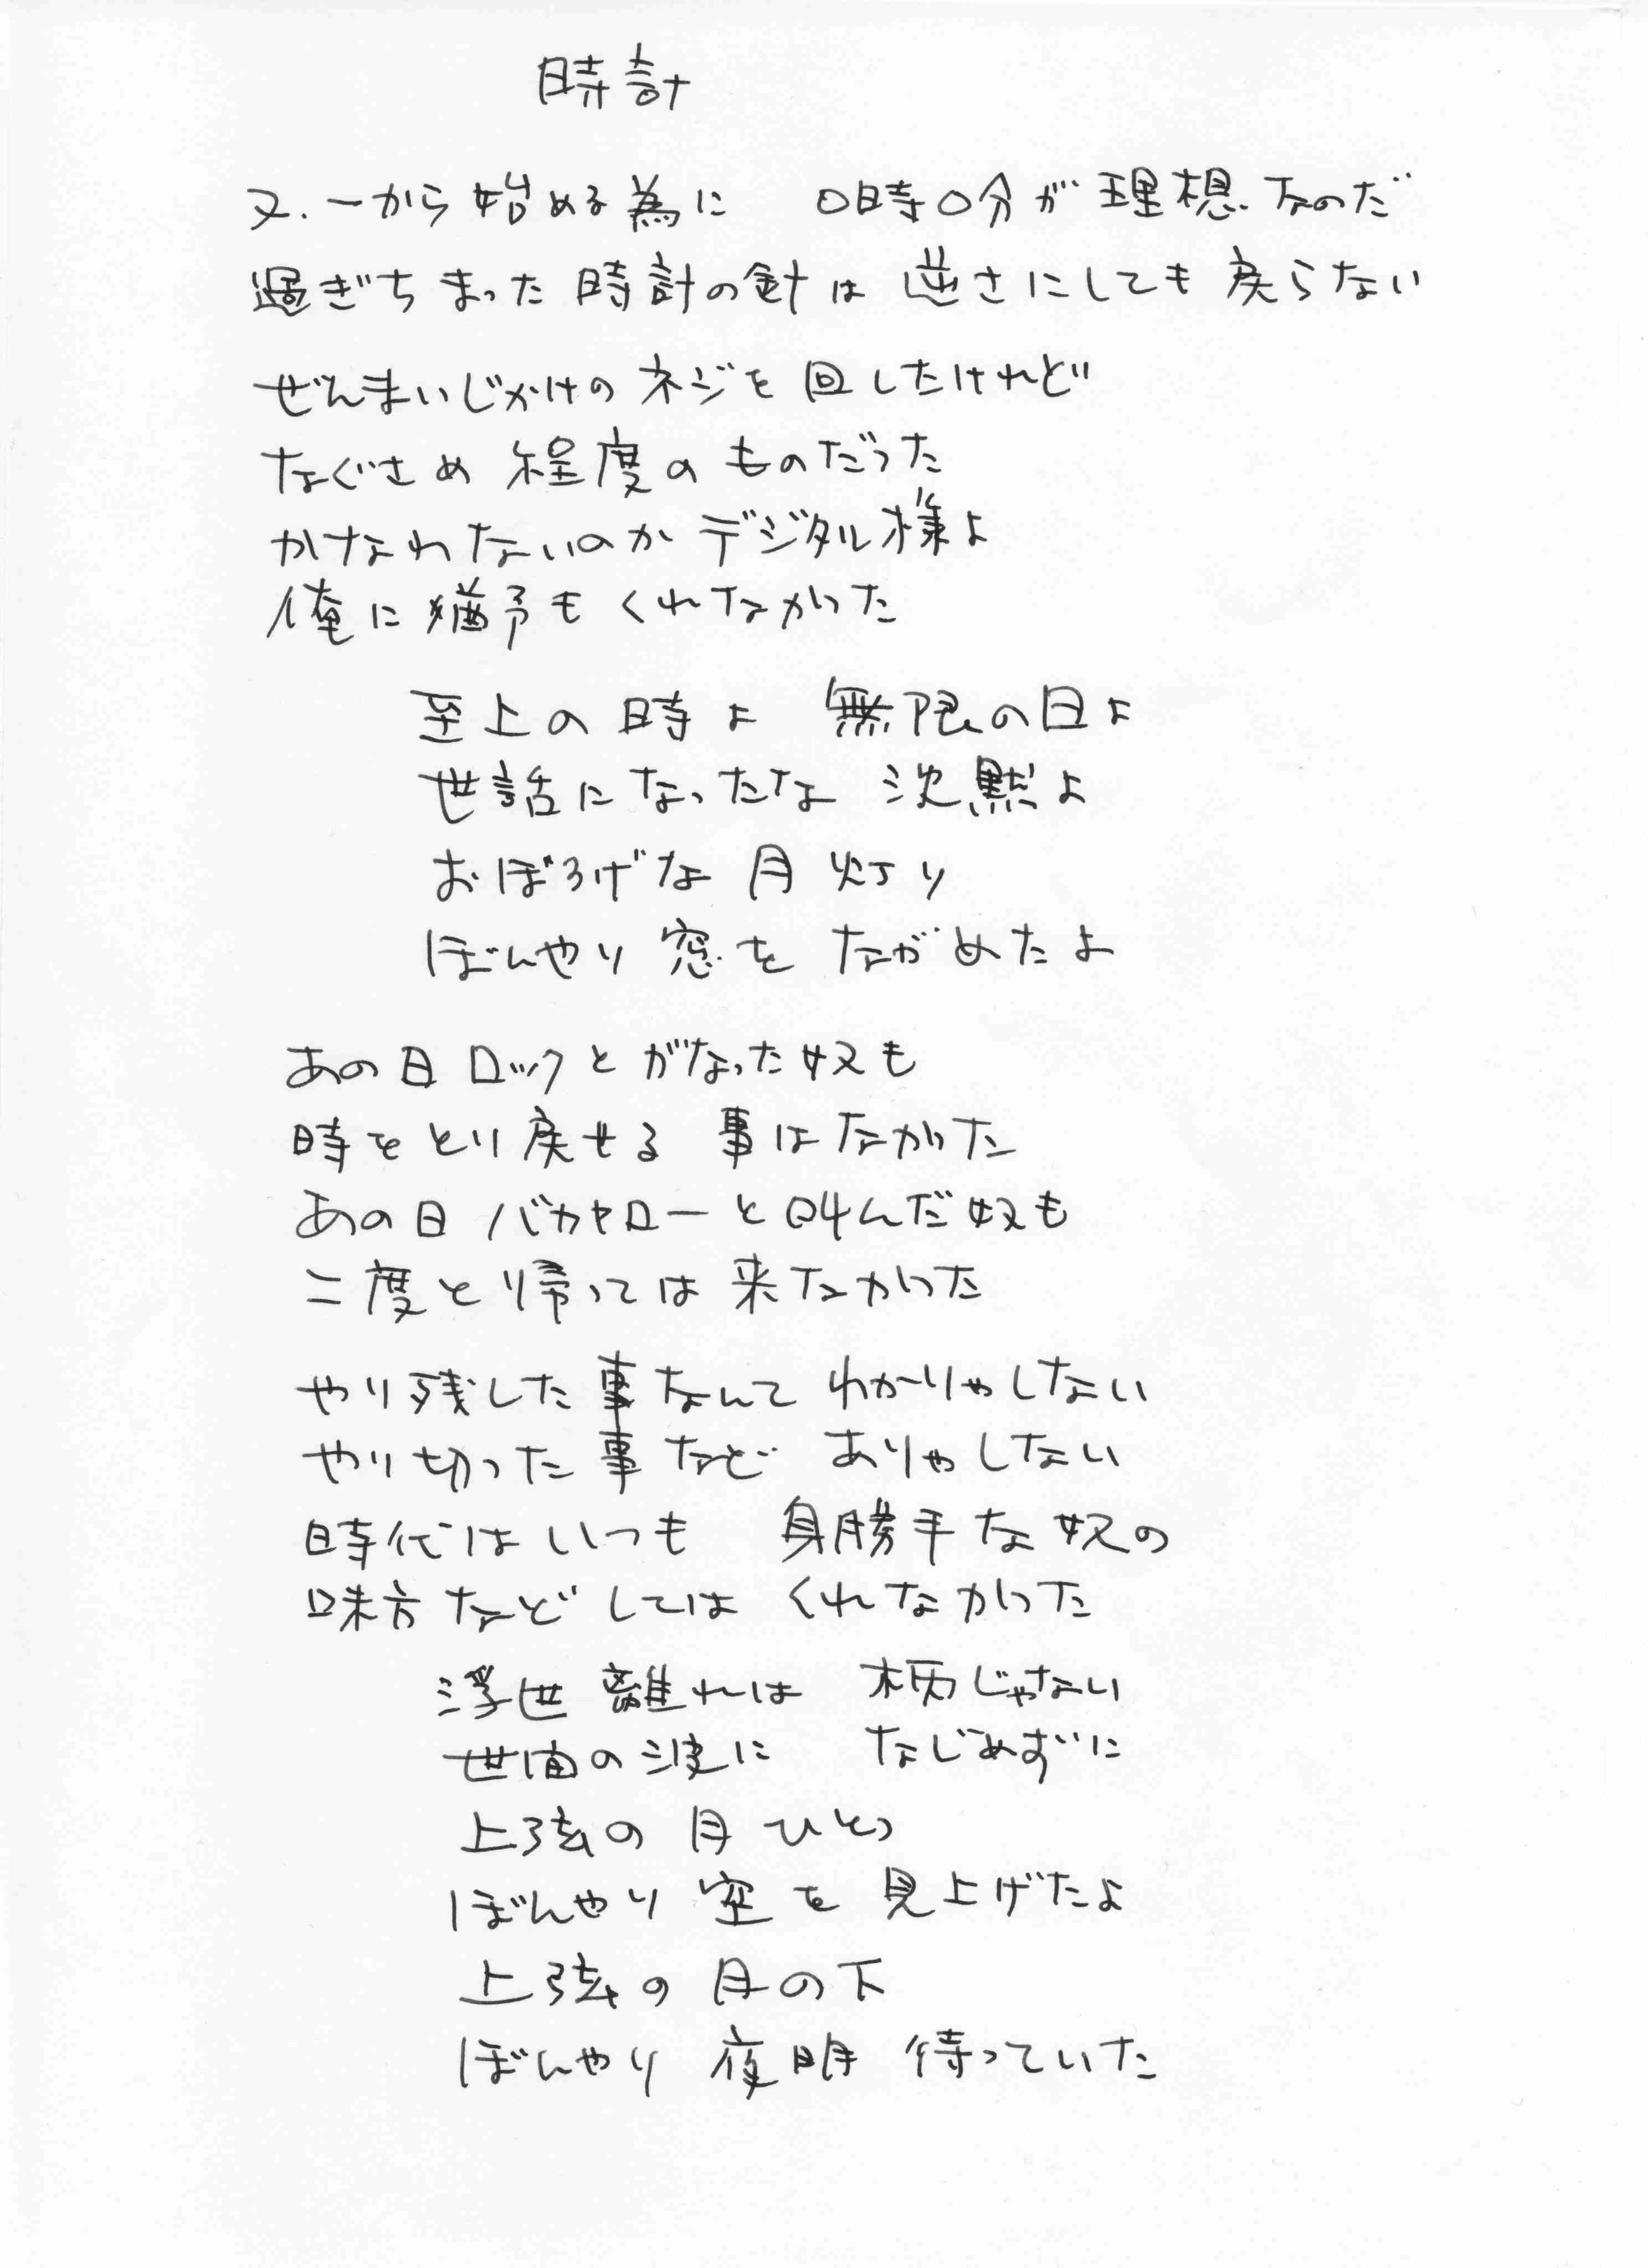 時計
又、一から始める為に　0時0分が理想なのだ
過ぎちまった時計の針は逆さにしても戻らない
ぜんまいじかけのネジを回したけれど
なぐさめ程度のものだった
かなわないのかデジタル様よ
俺に猶予もくれなかった
至上の時よ　無限の日よ
世話になったな　沈黙よ
おぼろげな月灯り
ぼんやり窓をながめたよ
あの日ロックとがなった奴も
時をとり戻せる事はなかった
あの日バカヤローと叫んだ奴も
二度と帰っては来なかった
やり残した事なんて　わかりゃしない
やり切った事など　ありゃしない
時代はいつも　身勝手な奴の
味方などしてはくれなかった
浮世離れは　柄じゃない
世間の波に　なじめずに
上弦の月ひとつ
ぼんやり空を見上げたよ
上弦の月の下
ぼんやり夜明待っていた